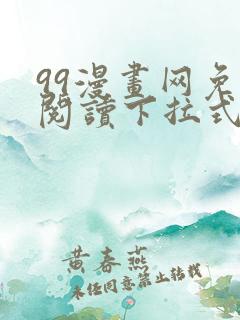 99漫畫网免
閱讀下拉式
黄春燕
未经同意禁止转载